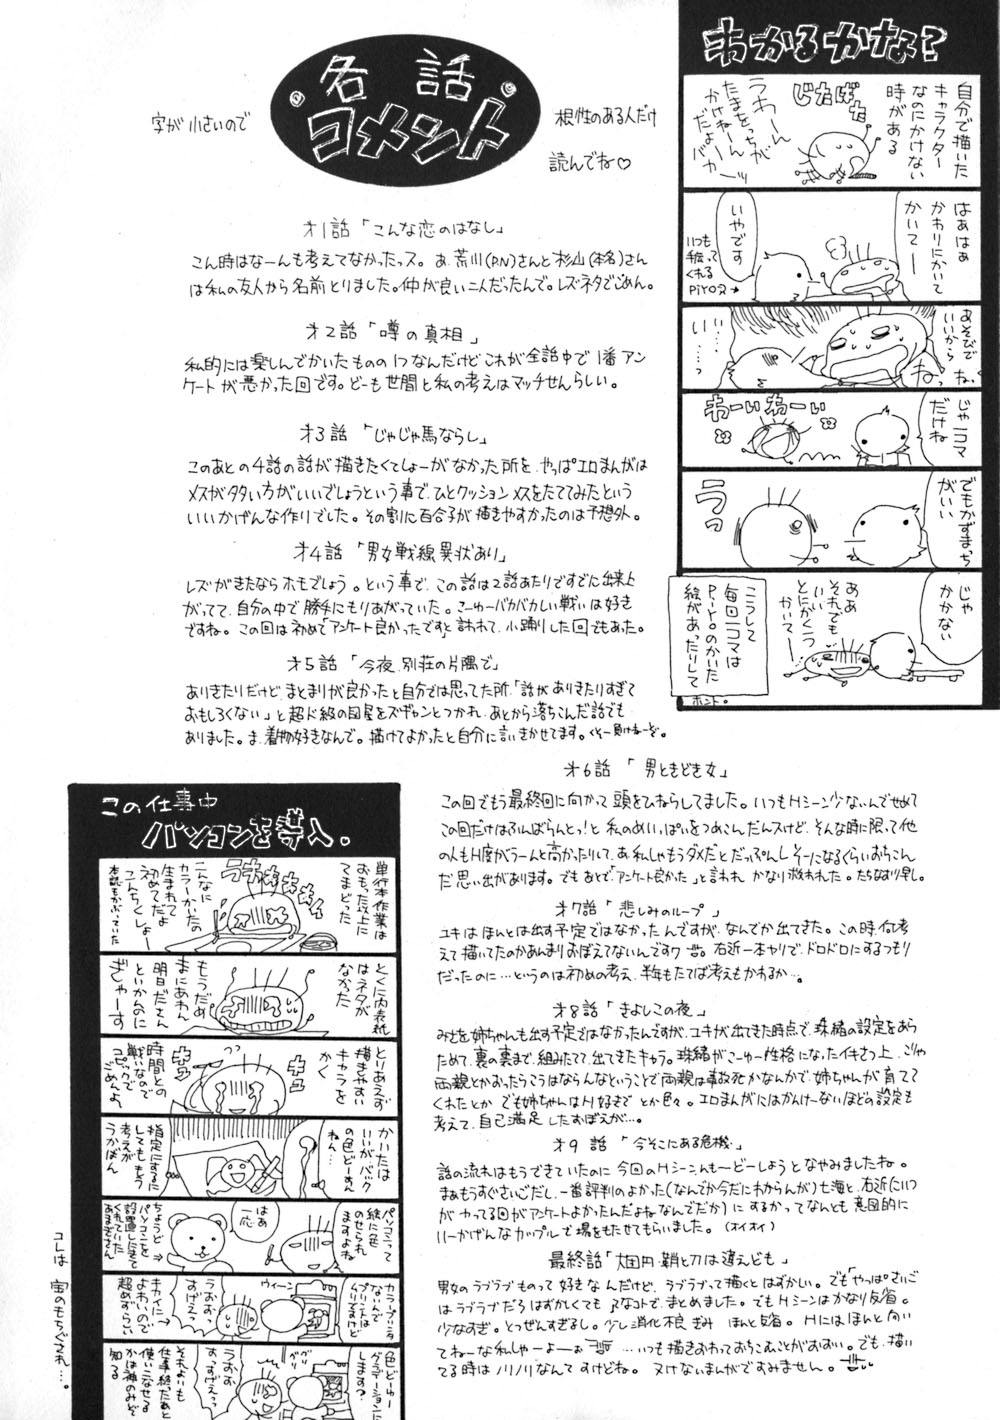 各話
コメント
字が小さいので
根性のある人だけ
読んでね♡
オ1話「こんな恋のはなし」
こん時はなーんも考えてなかったっス。あ、荒川(P.N)さんと杉山(本名)さん
は私の友人から名前とりました。仲が良い二人だったんで。レズネタでごめん。
オ2話「噂の真相」
私的には楽しんでかいたものの1つなんだけど これが全話中で1番アン
ケートが悪かった回です。どーも世間と私の考えはマッチせんらしい。
オ3話「じゃじゃ馬ならし」
このあとの4話の話が描きたくてしょーがなかった所を、やっぱエロまんがは
メスがタタい方がいいでしょうという事で、ひとクッションメスをたててみたという
いいかげんな作りでした。その割に百合子が描きやすかったのは予想外。
オ4話「男女戦線異状あり」
レズがきたならホモでしょう。という事で、この話は2話あたりですでに出来上
がってて、自分の中で勝手にもりあがっていた。こーゆーバカバカしい戦いは好き
ですね。この回は初めて「アンケート良かったです」と言われて、小踊りした回でもあった。
オ5話「今夜、別荘の片隅で」
ありきたりだけど、まとまりが良かったと自分では思ってた所、「話がありきたりすぎて
おもしろくない」と超ド級の図星をズギャンとつかれ、あとから落ちこんだ話でも
ありました。ま、着物好きなんで。描けてよかったと自分に言いきかせてます。くそー負けねーぞ。
オ6話「男ときどき女」
この回でもう最終回に向かって頭をひねらしてました。いつもHシーン少ないんでせめて
この回だけはふんばらんとっ!と私のめいっぱいをつめこんだんスけど、そんな時に限って他
の人もH度がうーんと高かったりして、あ、私しゃもうダメだとだっぷんしそーになるぐらいおちこん
だ思い出があります。でもあとで「アンケート良かた」と言われ かなり救われた。たちなおり早し。
オ7話「悲しみのループ」
ユキはほんとは出す予定ではなかったんですが、なんでか出てきた。この時、何考
えて描いてたのかあんまりおぼえてないんです
右近一本ヤリで、ドロドロにするつもり
だったのに…というのは初めの考え、半年もたてば考えもかわるか…。
オ8話「きよしこの夜」
みさを姉ちゃんも出す予定ではなかったんですが、ユキが出てきた時点で、珠緒の設定をあら
ためて、裏の裏まで、組みたてて、出てきたキャラ。珠緒がこーゆー性格になったイキさつ上、こりゃ
両親とかおったらこうはならんなということで両親は事故死かなんかで、姉ちゃんが育てて
くれたとか でも姉ちゃんはH好きで とか色々。エロまんがにはかんけーないほどの設定も
考えて、自己満足したおぼえが…。
オ9話「今そこにある危機」
話の流れはもうできていたのに 今回のHシーンんも〜どーしよう となやみましたね。
まあもうすぐさいごだし、一番評判のよかった(なんでか今だにわからんが)七海と、右近(こいつ
がヤってる回がアンケートよかったんだよねなんでだか)にするかってなんとも意図的に
いーかげんなカップルで場をもたせてもらいました。(オイオイ)
最終話「大団円・鞘と刀は違えども」
男女のラブラブものって好きなんだけど、ラブラブって描くとはずかしい。でも「やっぱさいご
はラブラブだろ はずかしくても アタなコトで、まとめました。でもHシーンはかなり反省。
少なすぎ。とつぜんすぎるし。少し消化不良ぎみ ほんと反省。Hにはほんと向い
てねーな私しゃーよーぉ
…いつも描きおわっておちこむことがおおい。でも、描い
てる時はノリノリなんてすけどね。ヌけないまんがですみません。
わかるかな?
自分で描いた
キャラクター
なのにかけない
時がある
じたばた
うわーん
たまをっちが
かけねーん
だよー
バーカーッ
はぁはぁ
かわりにかいて
かいてー
いやです
いつも
手伝って
くれる
Piyoス→
あそびで
いいから
ねっ、ね、
い…
いっ…
じゃ一コマ
だけね
わーいわーい
でもかずまっち
がいい
うっ
じゃ
かかない
ああ
それでも
いい
とにかくっ
かいてー
こうして
毎回一コマは
Piyo.のかいた
絵があったりして
ホント。
この仕事中
パソコンを導入。
単行本作業は
おもった以上に
てまどった
こんなに
カラーかいたの
生まれて
初めてだよ
こんちくしょー
本誌もかぶっていた
とくに内表紙
はネタが
なかった
もうだめ
まにあわん
明日ださん
といかんのに
ぎゃーす
とりあえず
描きやすい
キャラを
かく
時間との
戦いなので
コピックで
ごめんよ
かいたは
いいがバック
の色どーすん
ねん…
指定にするに
してももう
考えが
うかばん
パソコンって
絵に色
のせられ
ますよね
はぁ
一応
ちょうど⇒
パソコンを
設置しに来て
くれていた
あまぎさん
ウィーン
うおお
すげえっ
キカイに
よわいので
超めずらしい
色どーゆー
グラデーションに
します?
ぐりぐり
うおお
すっすげえっ
それよりも
仕事終ったあと
使いこなせる
かは神のみぞ
知る
コレは宝のもちぐされ…。